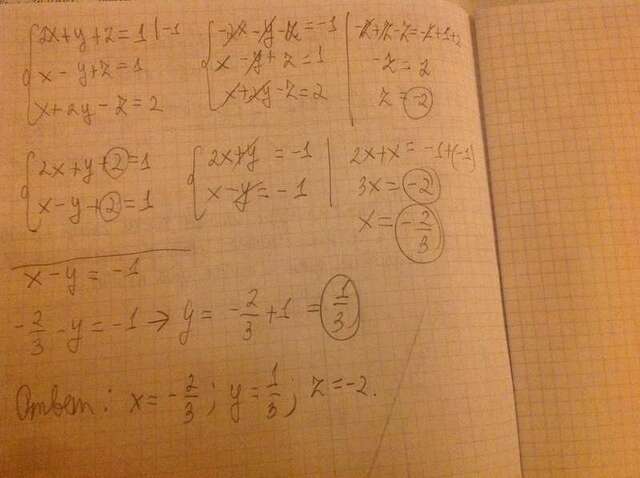 2x+y+z=1 |-1
x-y+z=1
x+2y-z=2
-2x-y-z=-1
x-y+z=1
x+2y-z=2
-z=2
z=-2
2x+y+2=1
x-y+2=1
2x+y=-1
x-y=-1
2x+x=-1+(-1)
3x=-2
x=-2/3
x-y=-1
-2/3-y=-1→y=-2/3+1=1/3
Ответ: x=-2/3; y=1/3; z=-2.